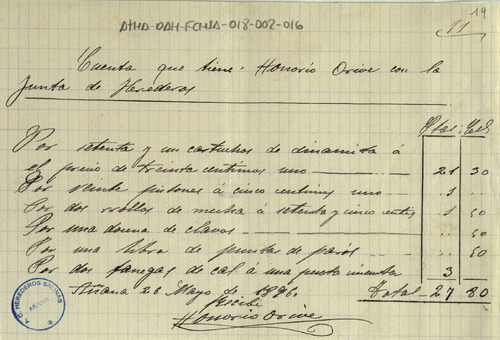 19
11
ATHA-DAH-FCHSA-018-002-016
Cuenta que tiene Honorio Orive con la
Junta de Herederos
Ptas Cts
Por setenta y un cartuchos de dinamita á
el precio de treinta centimos uno 21 30
Por veinte pistones á cinco centimos uno 1
Por dos rrollos de mecha á setenta y cinco cents 1 50
Por una docena de clavos 50
Por una libra de puntas de paros 50
Por dos fanegas de cal á una peseta cincuenta 3
Añana 26 Mayo de 1896. Total 27 80
Recibi
Honorio Orive
HEREDEROS SALINAS
AÑANA